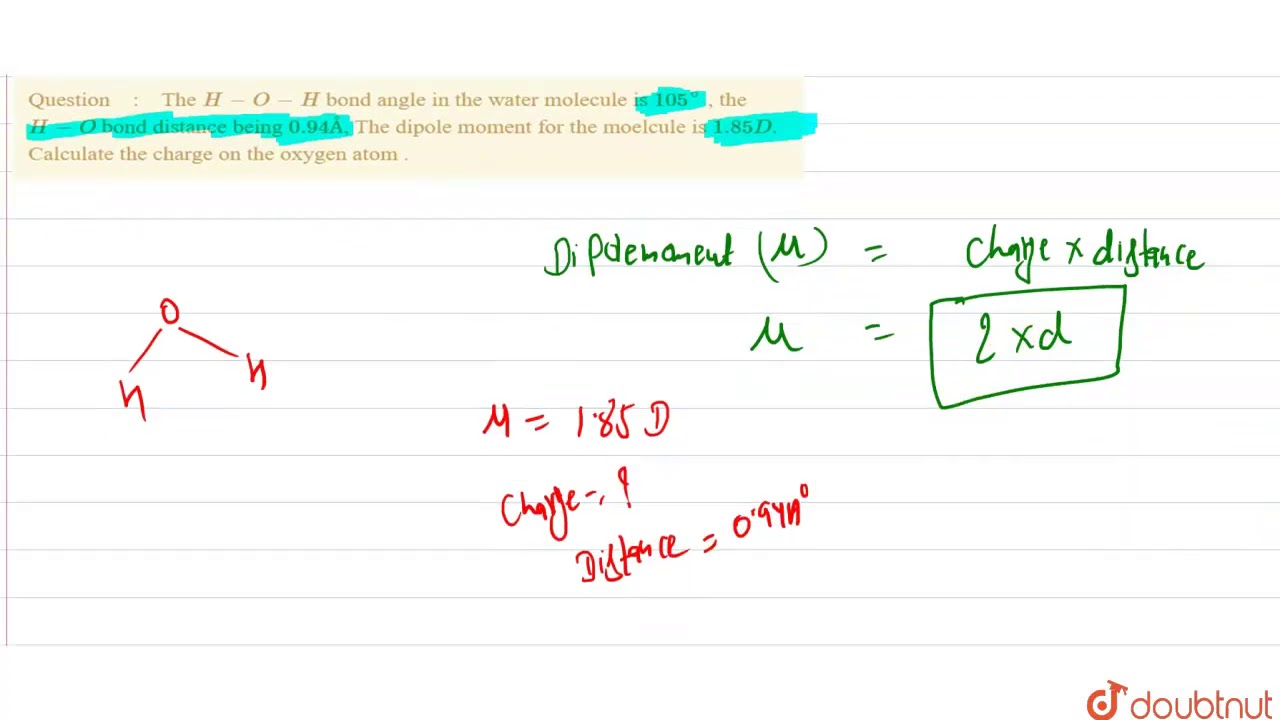 Question : The H – O – H bond angle in the water molecule is 105° , the
H – O bond distance being 0.94Å, The dipole moment for the moelcule is 1.85D.
Calculate the charge on the oxygen atom .
Dipolemoment (μ) = Charge × distance
μ = q × d
O
H H
μ = 1.85 D
Charge = ?
Distance = 0.94A°
doubtnut